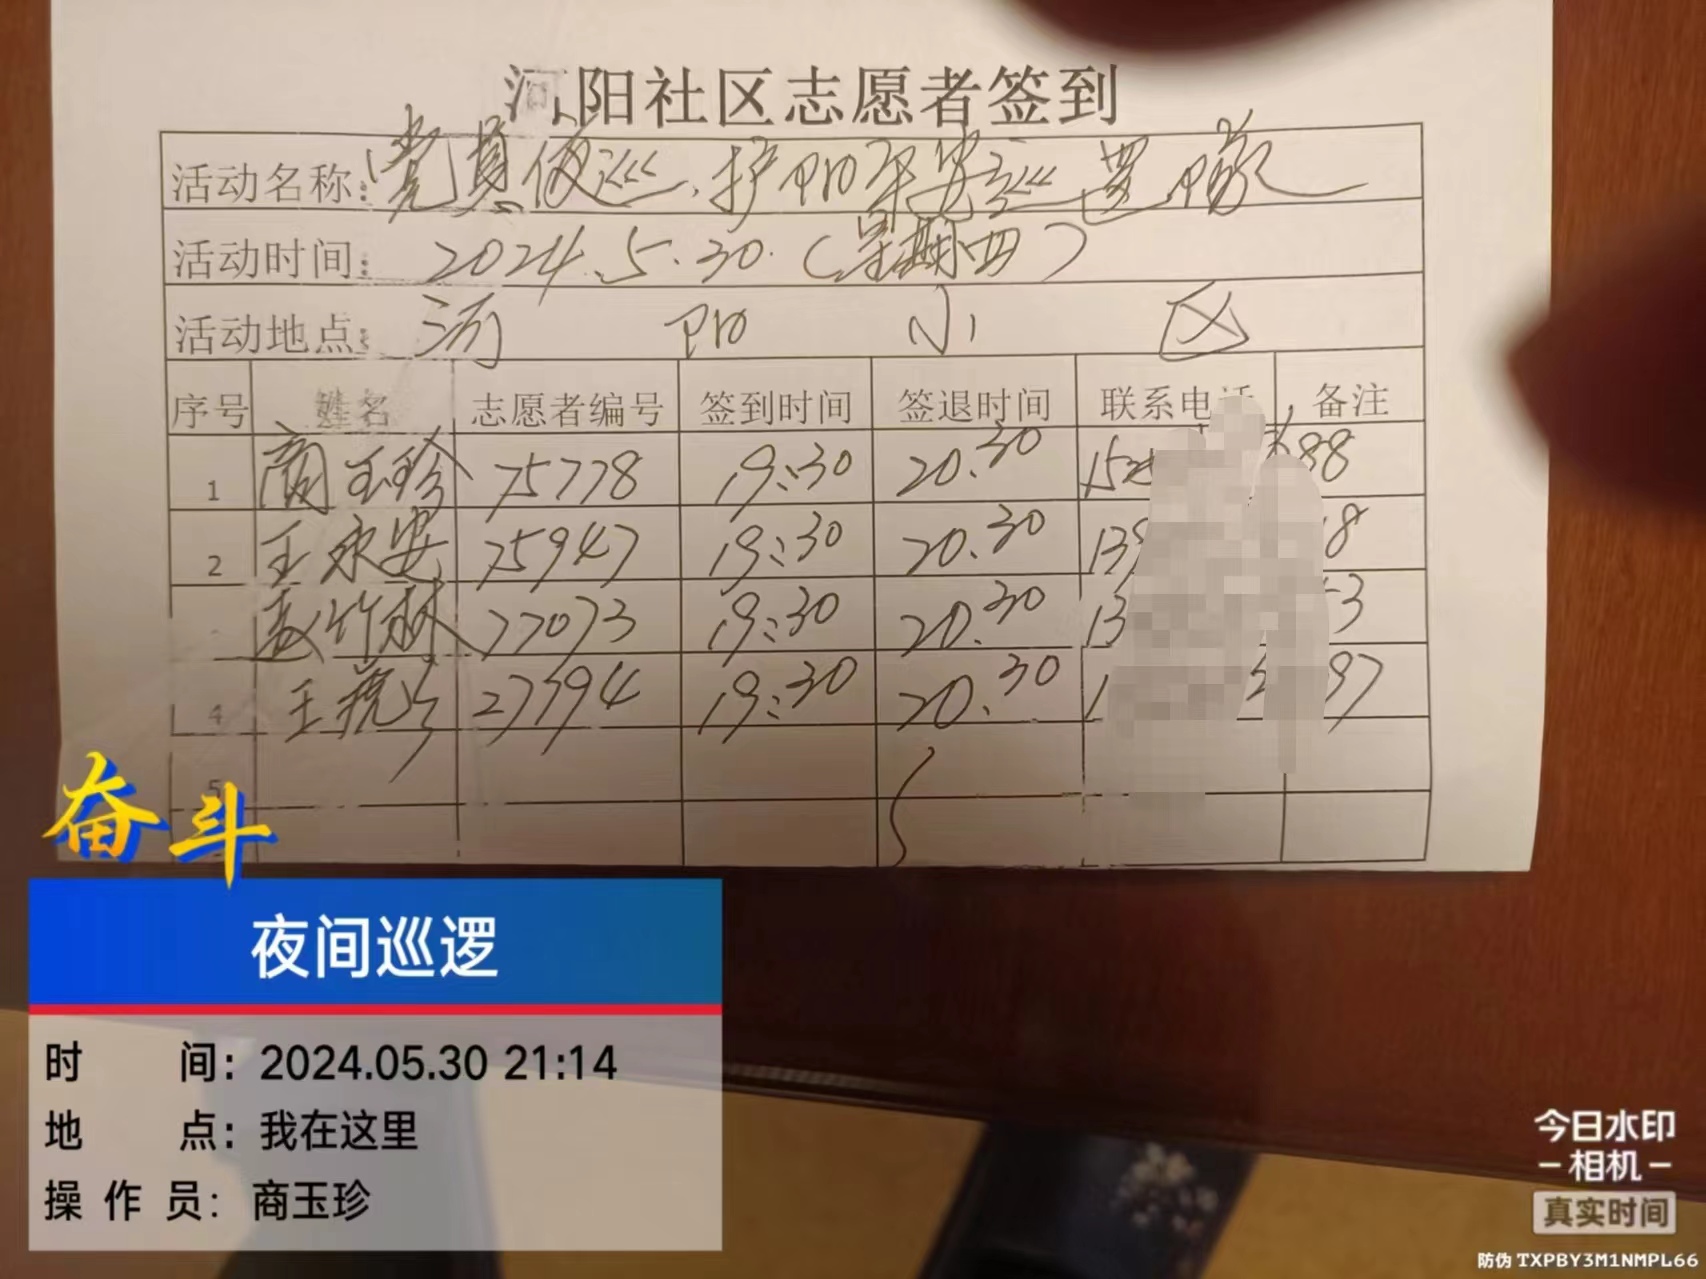 河阳社区志愿者签到
活动名称: 党员夜巡,护阳平安巡逻队
活动时间: 2024.5.30.(星期四)
活动地点: 河阳小区
序号 姓名 志愿者编号 签到时间 签退时间 联系电话 备注
1 商玉珍 75778 19:30 20.30 152 88
2 王永安 75947 19:30 20.30 139 8
竹林 77073 19:30 20.30 13 3
4 王 19:30 20.30 1 97
5
奋斗
夜间巡逻
时间: 2024.05.30 21:14
地点: 我在这里
操作员: 商玉珍
今日水印
-相机-
真实时间
防伪 TXPBY3M1NMPL66